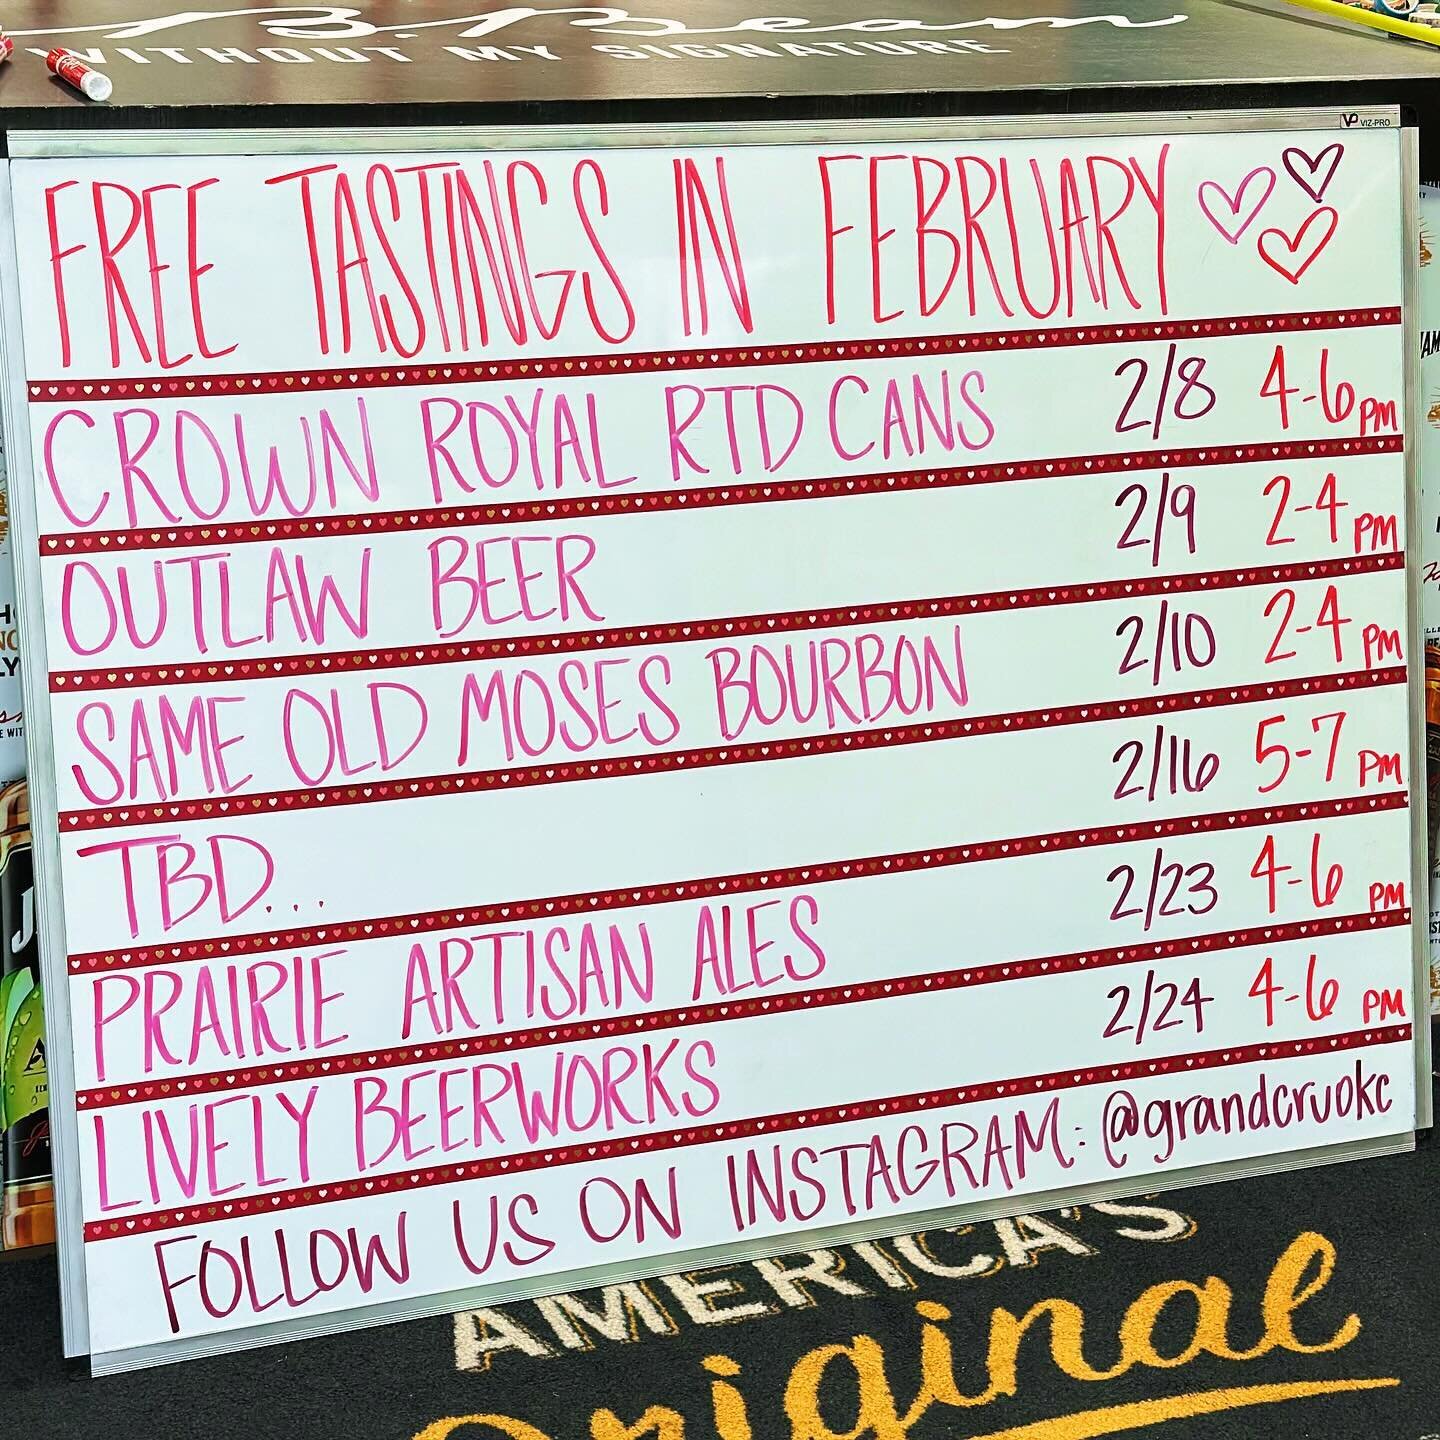 B. Beam
WITHOUT MY SIGNATURE
VP VIZ-PRO
FREE TASTINGS IN FEBRUARY
CROWN ROYAL RTD CANS 2/8 4-6 PM
OUTLAW BEER 2/9 2-4 PM
SAME OLD MOSES BOURBON 2/10 2-4 PM
TBD... 2/16 5-7 PM
PRAIRIE ARTISAN ALES 2/23 4-6 PM
LIVELY BEERWORKS 2/24 4-6 PM
FOLLOW US ON INSTAGRAM: @grandcruokc
AMERICA'S
Original